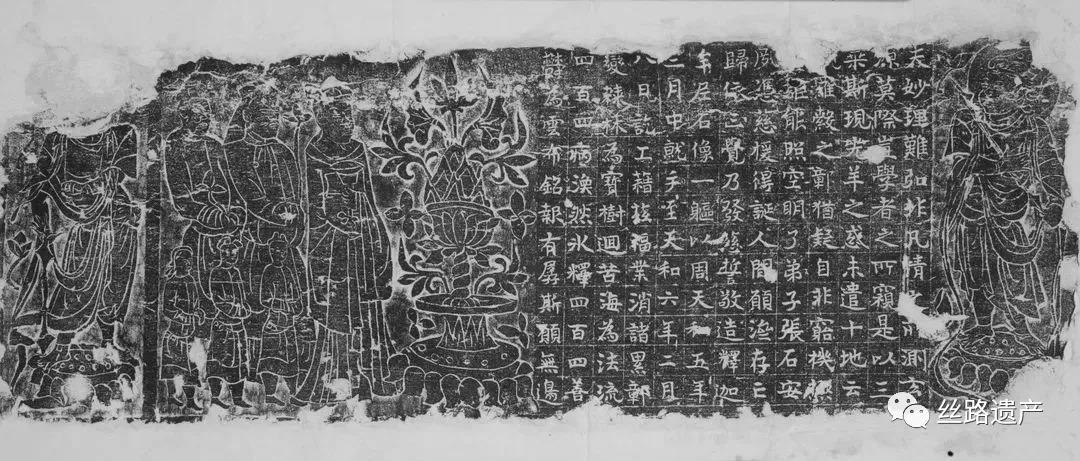 夫妙理難知非凡情測玄
源莫際夏學者之所窺是以三
乘斯現等羊之惑未遣十地云
雖縠之彰猶疑自非窮機
能照空明了弟子張石安
夙憑慈援得誕人間願沿存亡
歸依三覺乃發篤誓敬造釋迦
牟尼石像一軀以周天和五年
二月中就手至天和六年二月
八日訖工藉茲福業消諸累鄣
變秣為寶樹迴苦海為法流
四百四病渙然氷釋四百四善
欝為雲布銘報有孱斯願無惕
丝路遗产